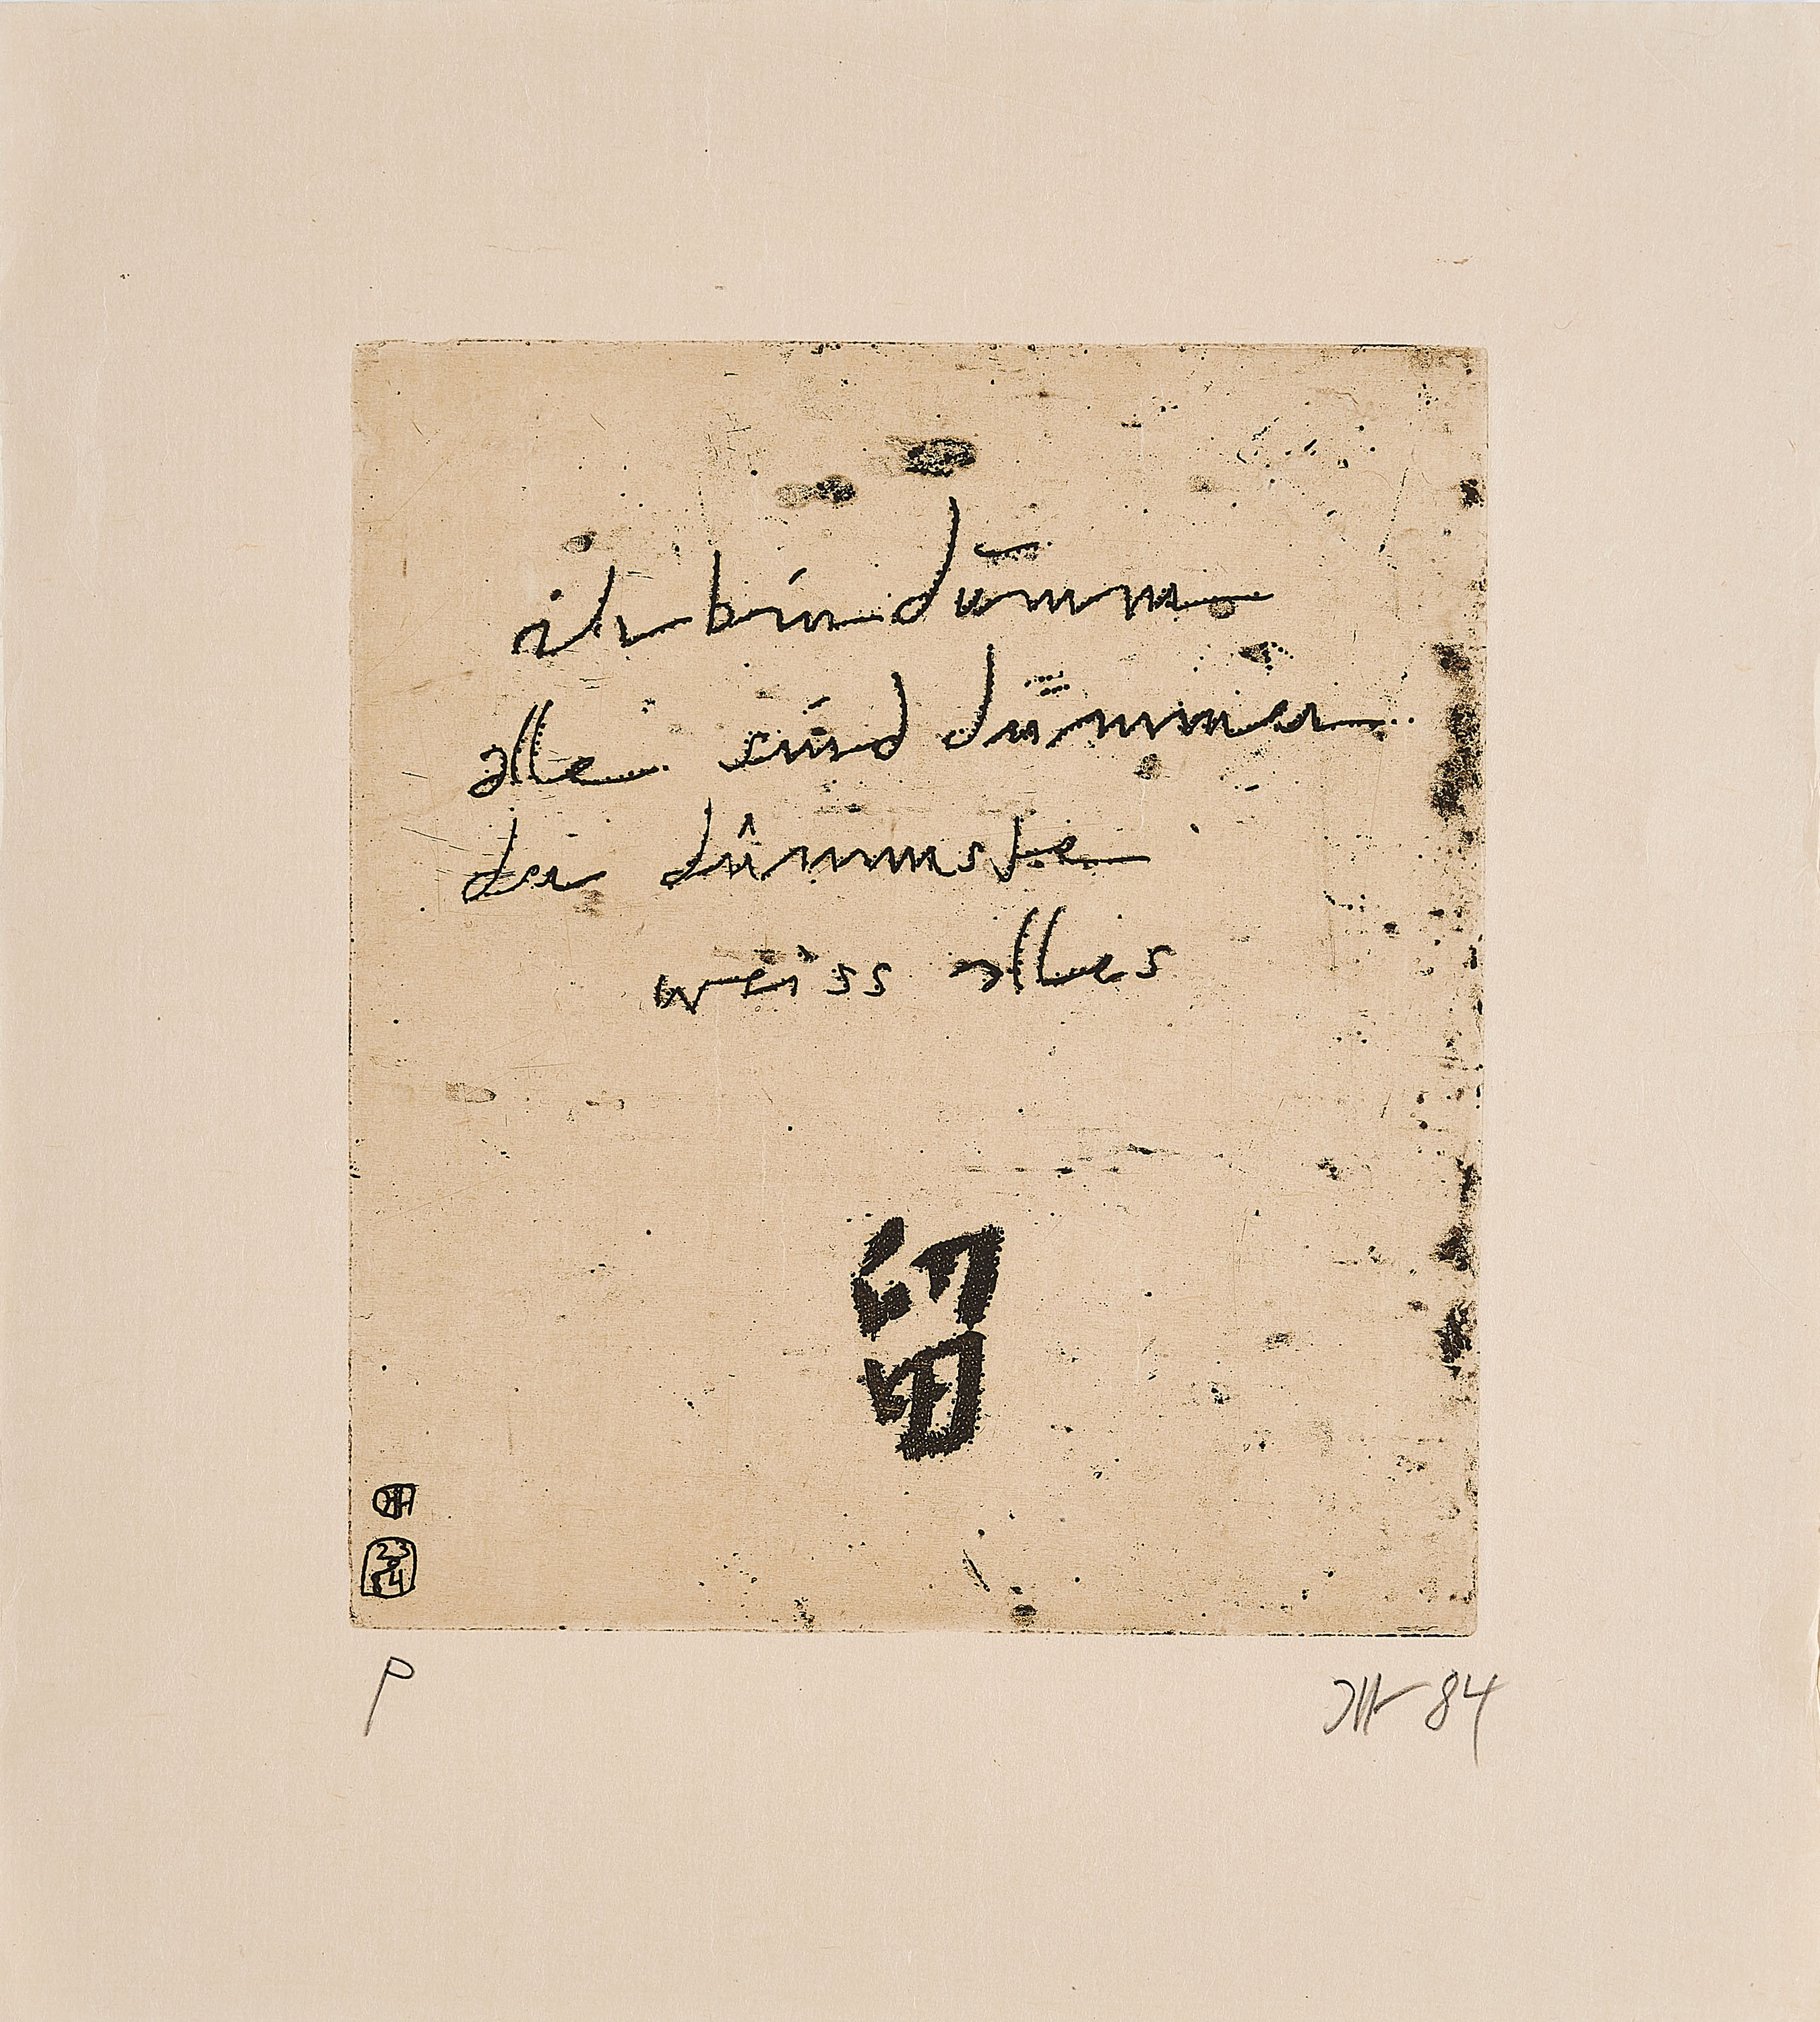 ich bin dumm
alle sind dümmer
der dümmste
weiss alles
留
23
84
P
84